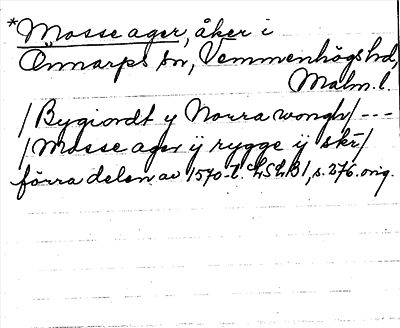 *Mosse ager, åker i
Önnarps sn, Vemmenhögs hd,
Malm. l.
/Bygiordt y Norra wongh/ ---
/Mosse ager ÿ rygge ÿ skr/
förra delen av 1570-t. LSLB1, s. 276. orig.